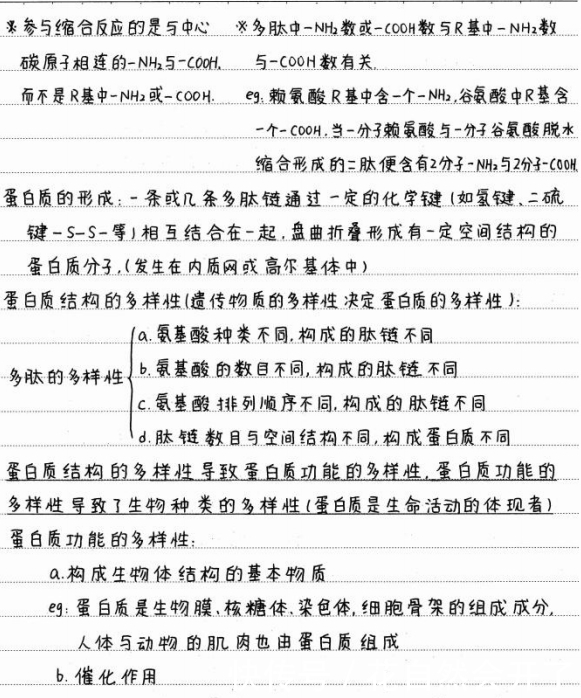 ※参与缩合反应的是与中心
碳原子相连的-NH₂与-COOH,
而不是R基中-NH₂或-COOH.
※多肽中-NH₂数或-COOH数与R基中-NH₂数
与-COOH数有关.
eg:赖氨酸R基中含一个-NH₂,谷氨酸中R基含
一个-COOH,当一分子赖氨酸与一分子谷氨酸脱水
缩合形成的二肽便含有2分子-NH₂与2分子-COOH
蛋白质的形成:一条或几条多肽链通过一定的化学键(如氢键、二硫
键-S-S-等)相互结合在一起,盘曲折叠形成有一定空间结构的
蛋白质分子,(发生在内质网或高尔基体中)
蛋白质结构的多样性(遗传物质的多样性决定蛋白质的多样性):
多肽的多样性
a.氨基酸种类不同,构成的肽链不同
b.氨基酸的数目不同,构成的肽链不同
c.氨基酸排列顺序不同,构成的肽链不同
d.肽链数目与空间结构不同,构成蛋白质不同
蛋白质结构的多样性导致蛋白质功能的多样性,蛋白质功能的
多样性导致了生物种类的多样性(蛋白质是生命活动的体现者)
蛋白质功能的多样性:
a.构成生物体结构的基本物质
eg:蛋白质是生物膜、核糖体、染色体,细胞骨架的组成成分,
人体与动物的肌肉也由蛋白质组成
b.催化作用